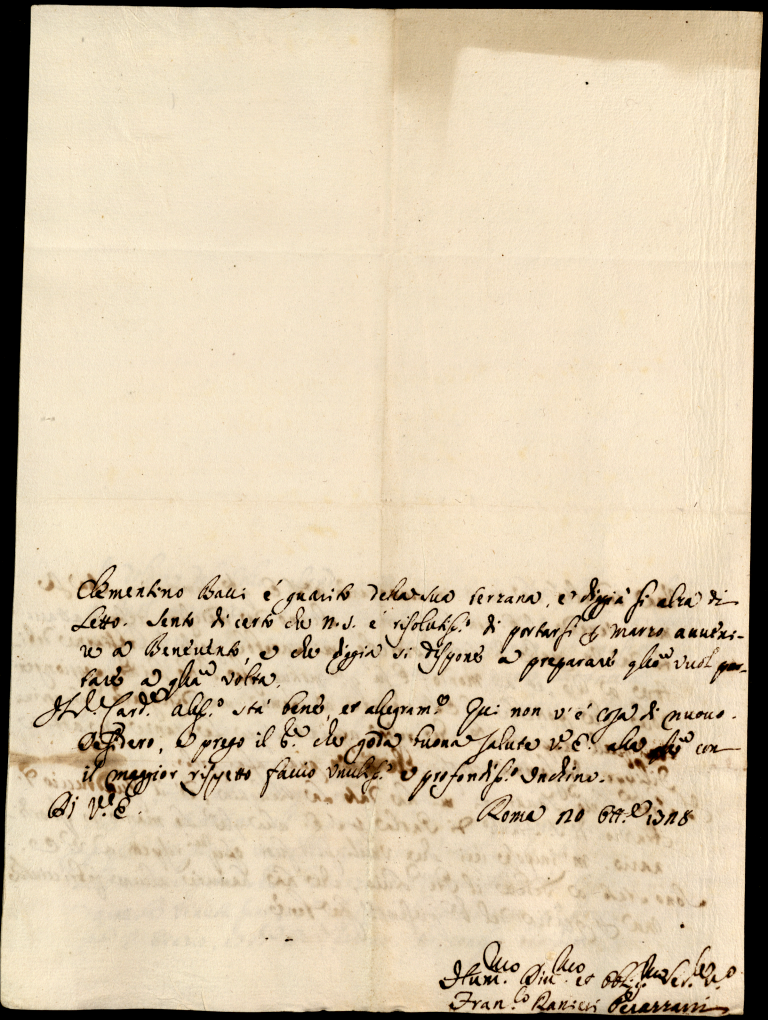 Clementino Bacci é guarito della sua terzana, e diggià si alza di
Letto. Sento di certo che N. S. è risolutiss.º di portarsi marzo avveni-
re a Benevento, e che diggià si dispone a preparare vuol por-
tare a volta.
Il S. Card.le Aless.º stà bene, et allegram.te Qui non v'è cosa di nuovo.
Desidero, e prego il S.e che goda buona salute V. E. alla con
il maggior rispetto faccio umiliss.º e profondiss.º inchino.
Di V. E.
Roma 20 8tt.e 1728
Hum.mo Div.mo et Obblig.mo Ser.re
Fran.co Ranieri